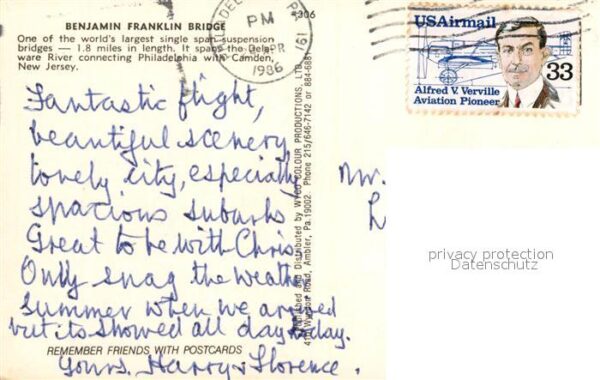 BENJAMIN FRANKLIN BRIDGE
One of the world's largest single span suspension
bridges — 1.8 miles in length. It spans the Dela-
ware River connecting Philadelphia with Camden,
New Jersey.
#306
PM
APR
1986
USAirmail
33
Alfred V. Verville
Aviation Pioneer
Fantastic flight,
beautiful scenery,
lovely city, especially
spacious suburbs
Great to be with Chris.
Only snag the weather
Summer when we arrived
but it showed all day today.
REMEMBER FRIENDS WITH POSTCARDS
Yours. Harry & Florence.
and Distributed by WYCO COLOUR PRODUCTIONS, LTD.
Road, Ambler, Pa. 19002. Phone 215/646-7142 or 884-688
Mr.
privacy protection
Datenschutz